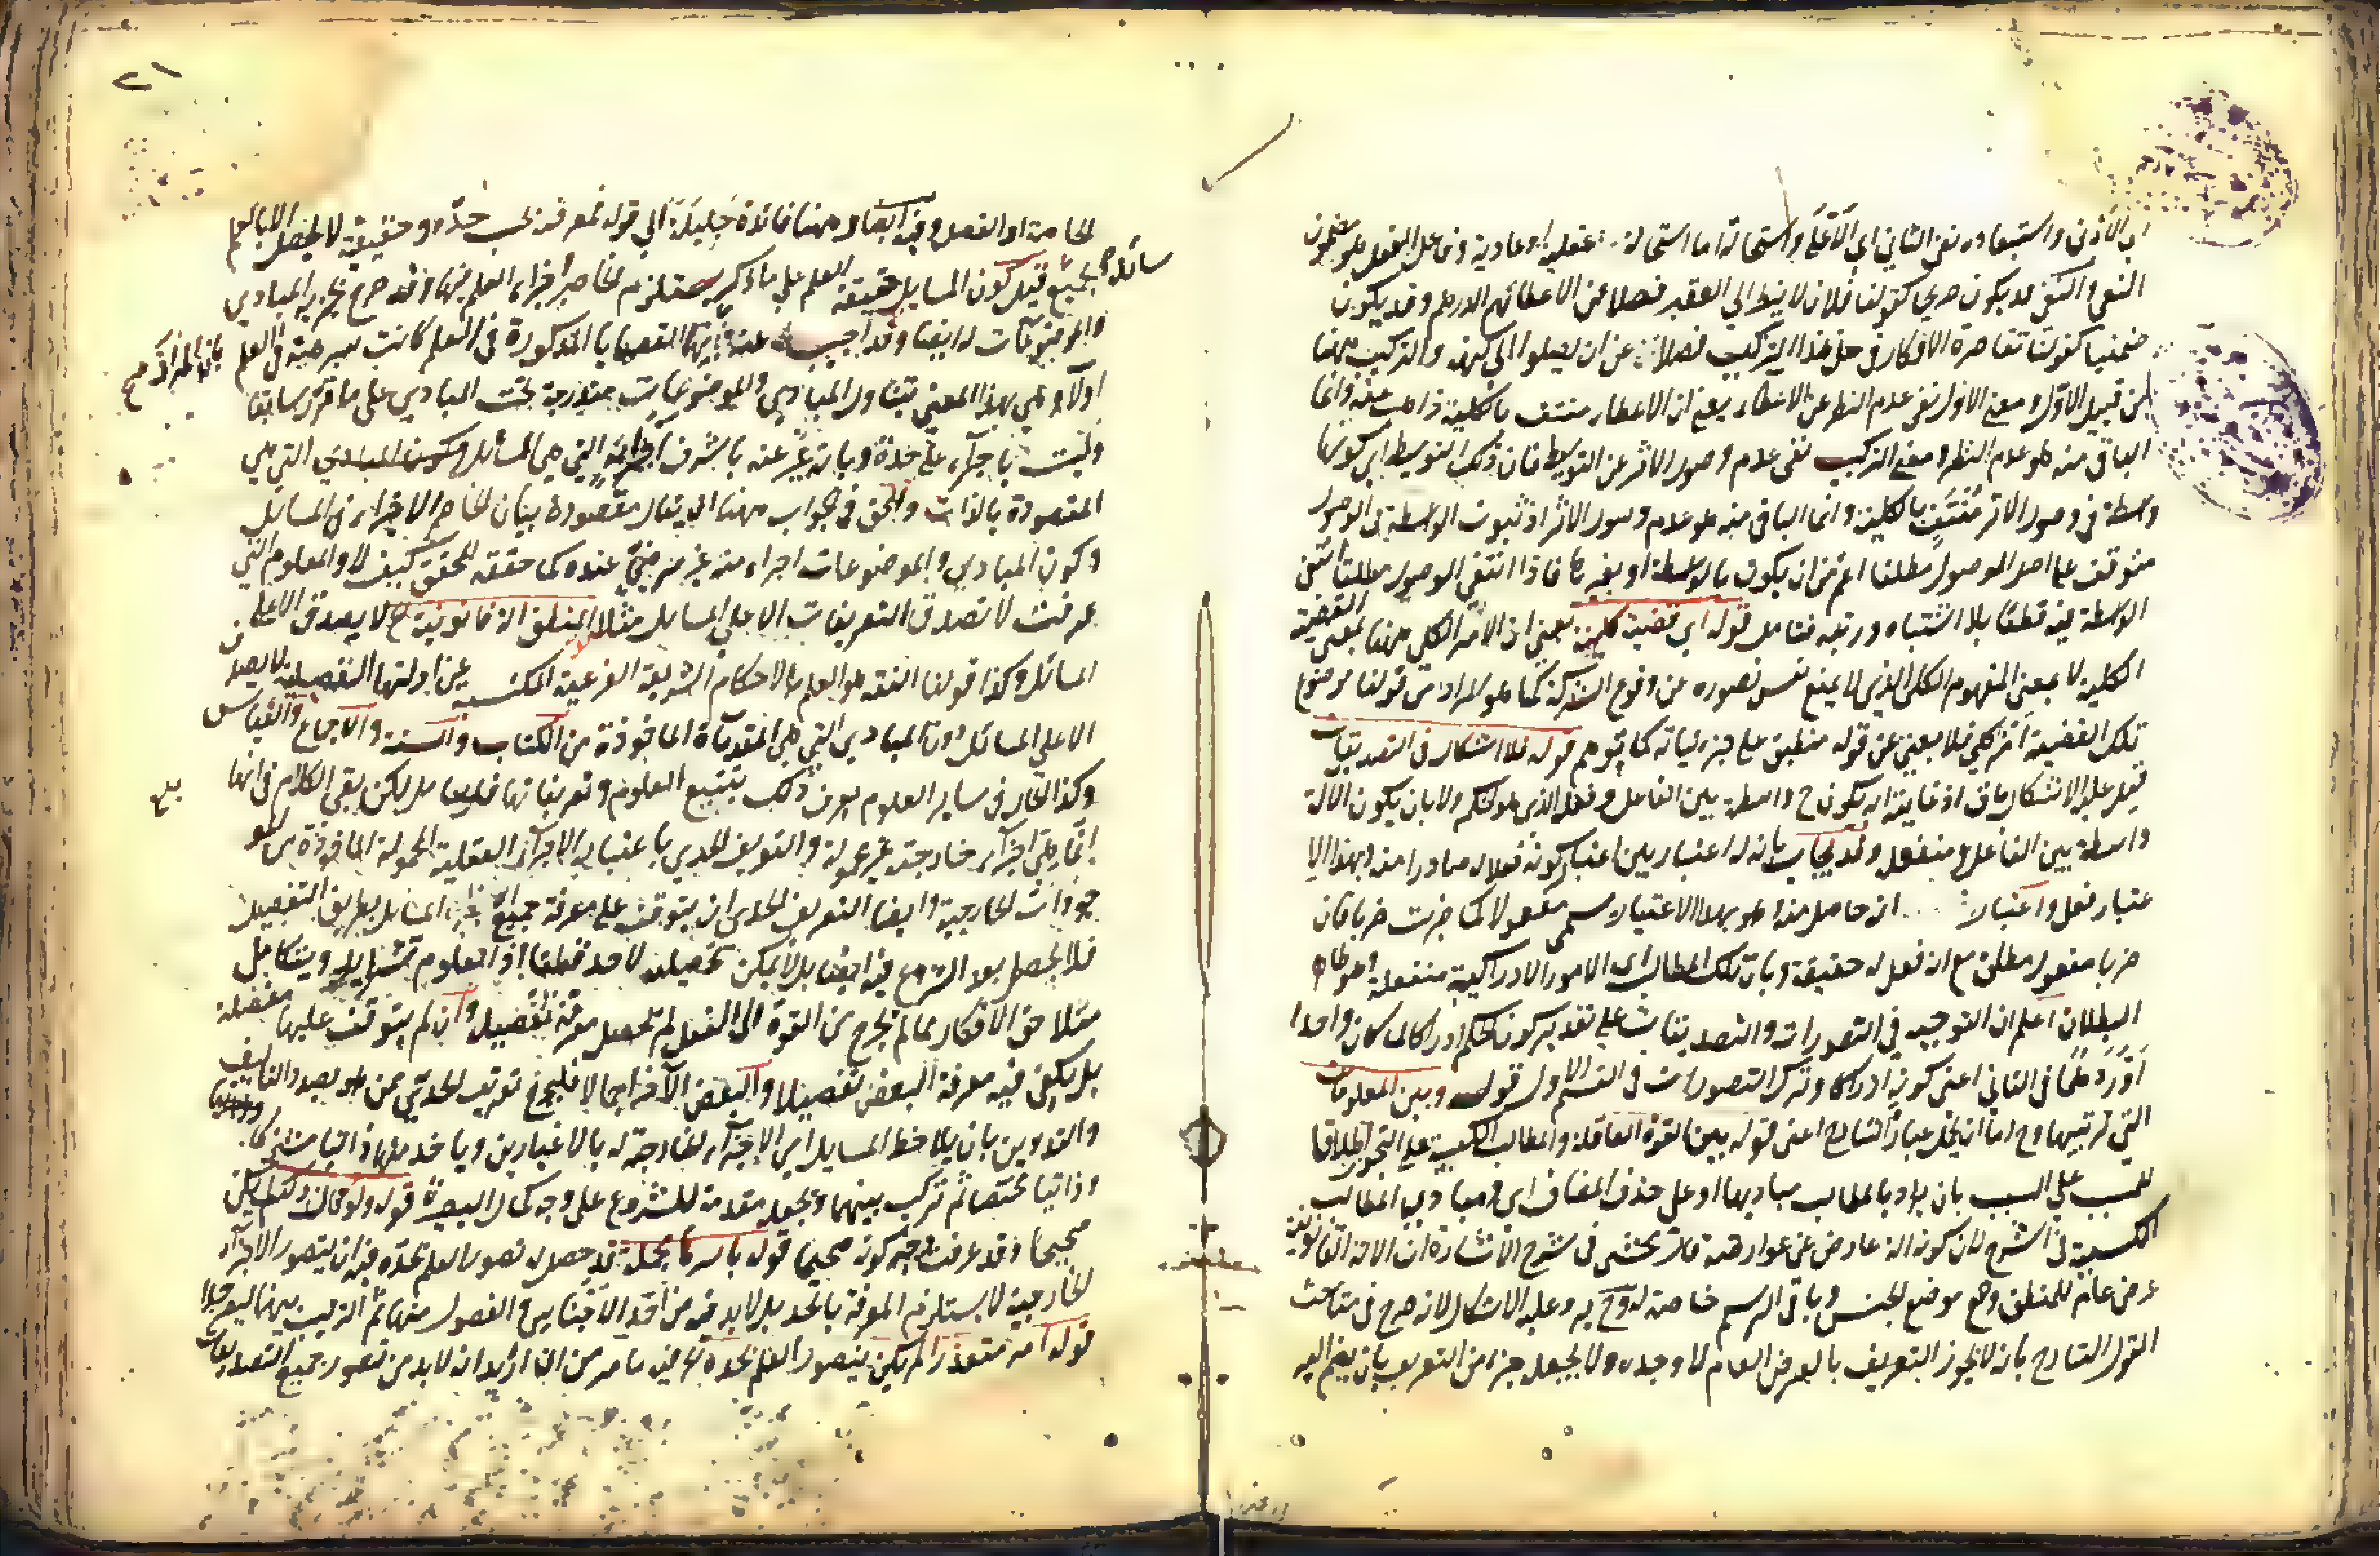 اي الادنى واستبعاده نفى الثاني اي الاعلى واستحالته اما استحالة عقلية او عادية وفاعل الفعل هو مضمون
النفي والنفي قد يكون صريحا كقولنا فلان لا ينظر الى الفقير فضلا عن الاعطائهم الدرهم وقد يكون
ضمنيا كقولنا تقاصرة الافكار في حل هذا التركيب فضلا عن ان يصلوا الى كنهه والتركيب ههنا
من قبيل الاول ومعنى الاول نفى عدم النظر عن الاعطاء يعني ان الاعطاء منتف بالكلية ذاهب عنه وانما
الباقي منه هو عدم النظر ومعنى التركيب نفى عدم وصول الاثر عن التوسط فان ذلك التوسط اي كونها
واسطة في وصول الاثر منتف بالكلية وانما الباقي منه هو عدم وصول الاثر اذ ثبوت الواسطة في الوصول
متوقف على اصل الوصول مطلقا اعم من ان يكون بالواسطة او بغيرها فاذا انتفى الوصول مطلقا انتفى
الواسطة فيه قطعا بلا اشتباه وريبة فتامل قوله اي قضية كلية يعني ان الامر الكلي ههنا بمعنى القضية
الكلية لا بمعنى المفهوم الكلي الذي لا يمنع نفس تصوره عن وقوع الشركة كما هو المراد من قولنا موضوع
تلك القضية امر كلي فلا يعني عن قوله منطبق على جزئياته كما توهم قوله فلا اشكال في التصديقات
قيل عليه الاشكال باق اذ غايته ان يكون ح واسطة بين الفاعل وفعله الذي هو الحكم ولا بان يكون الالة
واسطة بين الفاعل ومنفعله وقد يجاب بانه له اعتبارين اعتبار كونه فعلا له صادرا منه وبهذا الا
عتبار فعل واعتبار ان حاصل منه وهو بهذا الاعتبار يسمى مفعولا كما ضربت ضربا فان
ضربا مفعول مطلق مع ان فعل له حقيقة وبان تلك المطالب اي الامور الادراكية منفعلة وهو ظاهر
البطلان اعلم ان التوجيه في التصورات والتصديقات على تقدير كون الحكم ادراكا لما كان واحدا
اورد هما في الثاني اعني كونه ادراكا وترك التصورات في القسم الاول قوله وبين المعلومات
التي ترتيبها وح اما ان يحمل عبارة الشارح اعني قوله بين القوة العاقلة والمطالب الكسبية على التجوز اطلاقا
للمسبب على السبب بان يراد بالمطالب مباديها او على حذف المضاف اي مبادي المطالب
الكسبية في الشرح لان كونه الة عارض عن عوارضه قال المحشي في شرح الاشارة ان الالة القانونية
عرض عام للمنطق وضع موضع الجنس وباقي الرسم خاصة له وح يرد عليه الاشكال لانه صرح في مباحث
القول الشارح بانه لا يجوز التعريف بالعرض العام لا وحده ولا بجعل جزء من التعريف بان يضم اليه
٢١
الخاصة او الفصل وفيه ايضا وههنا فائدة جليلة الى قوله فمعرفته بحسب حده وحقيقته لا يحصل الا بالعلم
بجميع مسائله قيل كون المسايل حقيقة العلم على ما ذكره يستلزم انحصار اجزاء العلم فيها وقد صرح بجزئية المبادي
والموضوعات له ايضا وقد اجيب عنه بانها القضايا المذكورة في العلم كانت مبرهنة في العلم بالدلائل
اولا وهي بهذا المعنى يتناول المبادي والموضوعات مندرجة تحت المبادي على ما قرر سابقا
وليست باجزاء على حدة وبانه عبر عنه باشرف اجزائه التي هي المسائل وكون المبادي التي هي
المقصودة بالذات والحق في الجواب ههنا ان يقال مقصوده بيان انحصار الاجزاء في المسائل
وكون المبادي والموضوعات اجزاء منه غير مرضي عنده كما حققه المحقق كيف لا والمعلوم التي
عرفت لا تصدق التعريفات الا على المسايل مثلا المنطق الة قانونية الخ لا يصدق الا على
المسائل وكذا قولنا الفقه هو العلم بالاحكام الشرعية الفرعية المكتسبة عن ادلتها التفصيلية لا يصدق
الا على المسائل دون المبادي التي هي المقدمات الماخوذة من الكتاب والسنة والاجماع والقياس
وكذا الحال في ساير العلوم يعرف ذلك بتتبع العلوم وتعريفاتها فليتامل لكن بقي الكلام في انها
انما هي اجزاء خارجية غير محمولة والتعريف الحدي باعتبار الاجزاء العقلية المحمولة الماخوذة من
جزءات الخارجية وايضا التعريف الحدي ان يتوقف على معرفة جميع المسايل بطريق التفصيل
فلا يحصل بعد الشروع فيه ايضا بل لا يمكن تحصيله لاحد قطعا اذ العلوم تتزايد ويتكامل
بتلاحق الافكار فما لم يخرج من القوة الى الفعل لم تحصل معرفته بتفصيل وان لم يتوقف عليها مفصلة
بل يكفي فيه معرفة البعض تفصيلا والبعض الاخر اجمالا فليجوز تعريف الحدي ممن هو بصدد التاليف
والتدوين بان يلاحظ المسايل اي الاجزاء الخارجية له بالاعتبارين وياخذ منها ذاتيا مشتركا
وذاتيا مختصا ثم تركب بينهما ويجعل مقدمة للشروع على وجه كمال البصيرة قوله ولو قال ذلك لم يكن
صحيحا وقد عرفت وجه كونه صحيحا قوله باسرها مجملة قد حصل له تصور العلم بحده فيه ان تصور الاجزاء
الخارجية لا يستلزم المعرفة بالحد بل لا بد فيه من اخذ الاجناس والفصول منها ثم الترتيب بينهما ليصير حدا
قوله امر متعذر لم يكن يتصور العلم بحده فيه ما مر من انه ان اريد انه لا بد من تصور جميع التصديقات